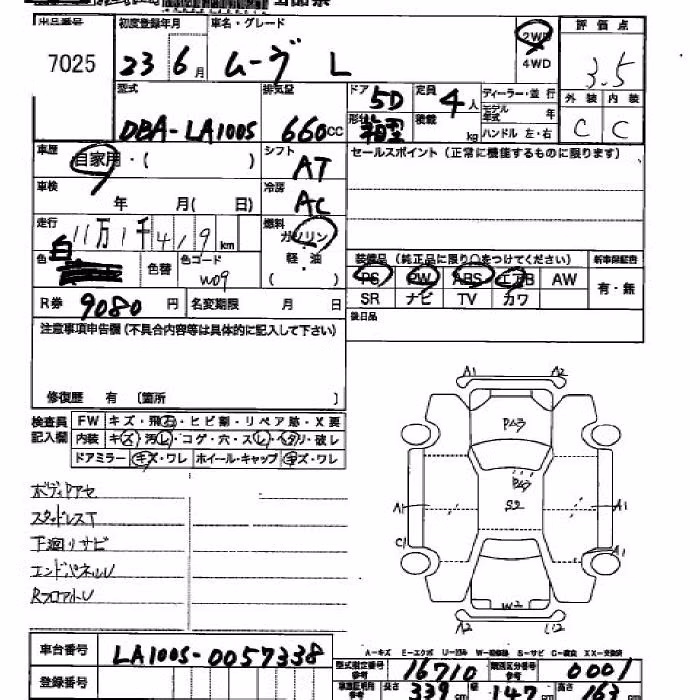 出品番号 初度登録年月 車名・グレード 評価点
7025 23 6月 ムーヴ L 2WD 4WD 3.5
型式 排気量 ドア 5D 定員 4人 ディーラー・並行 外装 内装
DBA-LA100S 660cc 形状 積載 kg モデル年式 年 C C
ハンドル 左・右
車歴 自家用・( ) シフト AT セールスポイント(正常に機能するものに限ります)
車検 年 月( 日) 冷房 AC
走行 11万1千419km 燃料 ガソリン
軽・油 装備品(純正品に限り○をつけてください) 新車保証書
色 白 色替 色コード W09 PS PW ABS エアB AW 有・無
R券 9080円 名変期限 月 日 SR ナビ TV カワ
注意事項申告欄(不具合内容等は具体的に記入して下さい) 後日品
修復歴 有 〔箇所 〕
検査員記入欄 FW キズ・飛石・ヒビ割・リペア跡・X要
内装 キズ・汚レ・コゲ・穴・スレ・ヘタリ・破レ
ドアミラー キズ・ワレ ホイール・キャップ キズ・ワレ
A1 A2
ボディアセ
スタッドレスT
下廻リサビ
エンドパネルU
RフロアトU
S2
A1 A1
C1 A1
W2
A2
A-キズ E-エクボ U-凹み W-補修跡 S-サビ C-腐食 XX-交換済
車台番号 LA100S-0057338 型式指定番号 参考 16710 類別区分番号 参考 0001
登録番号 長さ 339cm 幅 147cm 高さ 163cm